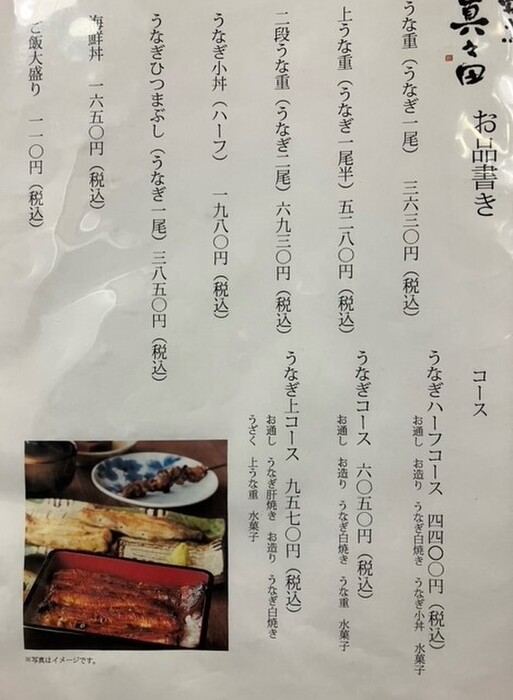 真々田
お品書き
うな重（うなぎ一尾）　三六三〇円（税込）
上うな重（うなぎ一尾半）五二八〇円（税込）
二段うな重（うなぎ二尾）六九三〇円（税込）
うなぎ小丼（ハーフ）　一九八〇円（税込）
うなぎひつまぶし（うなぎ一尾）三八五〇円（税込）
海鮮丼　一六五〇円（税込）
ご飯大盛り　一一〇円（税込）
コース
うなぎハーフコース　四四〇〇円（税込）
お通し　お造り　うなぎ白焼き　うなぎ小丼　水菓子
うなぎコース　六〇五〇円（税込）
お通し　お造り　うなぎ白焼き　うな重　水菓子
うなぎ上コース　九五七〇円（税込）
お通し　うなぎ肝焼き　お造り　うなぎ白焼き
うざく　上うな重　水菓子
※写真はイメージです。